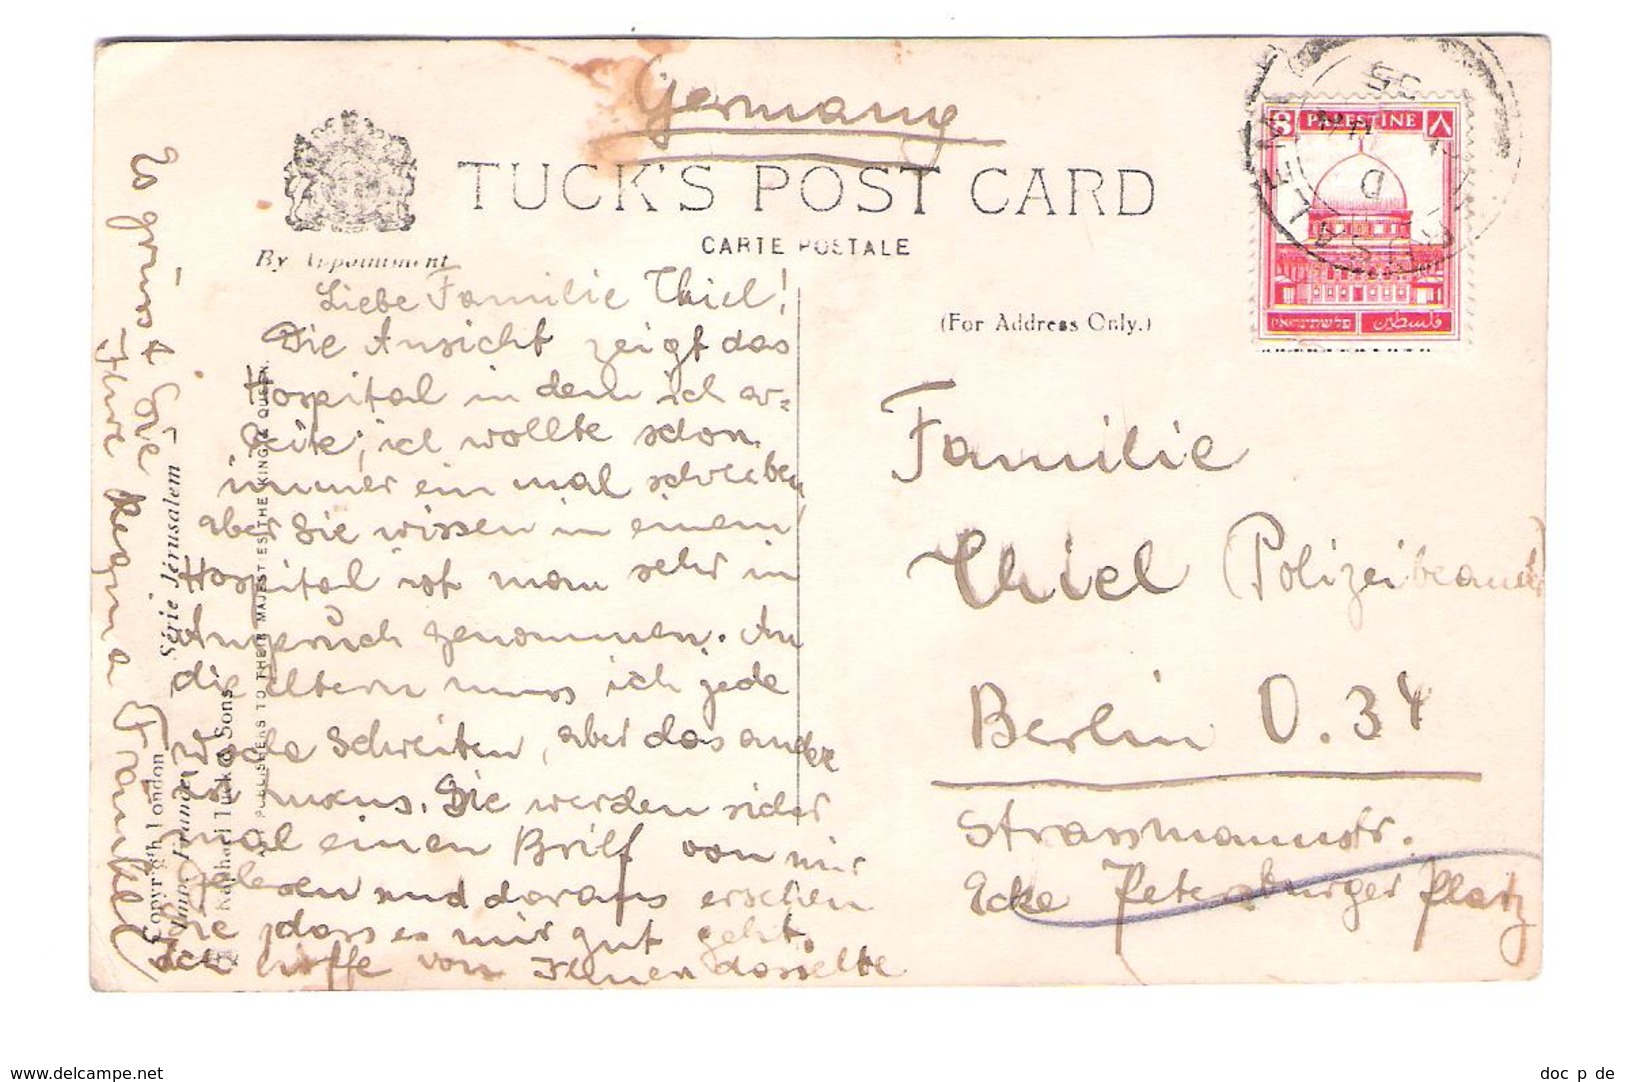 Germany
TUCK'S POST CARD
CARTE POSTALE
By Appointment
(For Address Only.)
8 PALESTINE ٨
פלשתינה א״י فلسطين
JERUSALEM
D
35
Liebe Familie Thiel!
Die Ansicht zeigt das
Hospital in dem ich ar=
beite; ich wollte schon
immer ein mal schreiben
aber Sie wissen in einem
Hospital ist man sehr in
Anspruch genommen. An
die Eltern muss ich jede
Woche schreiben, aber das andre
ist Luxus. Sie werden sicher
mal einen Brief von mir
gelesen und daraus ersehen
dass es mir gut geht.
Ich hoffe von Ihnen dasselbe
Es grüsst Sie
Ihre Regina Fränkel
Série Jérusalem
Copyright London
Raphael Tuck & Sons
ART PUBLISHERS TO THEIR MAJESTIES THE KING & QUEEN.
Familie
Thiel (Polizeibeamter
Berlin O. 34
Strassmannstr.
Ecke Petersburger Platz
delcampe.net
doc_p_de